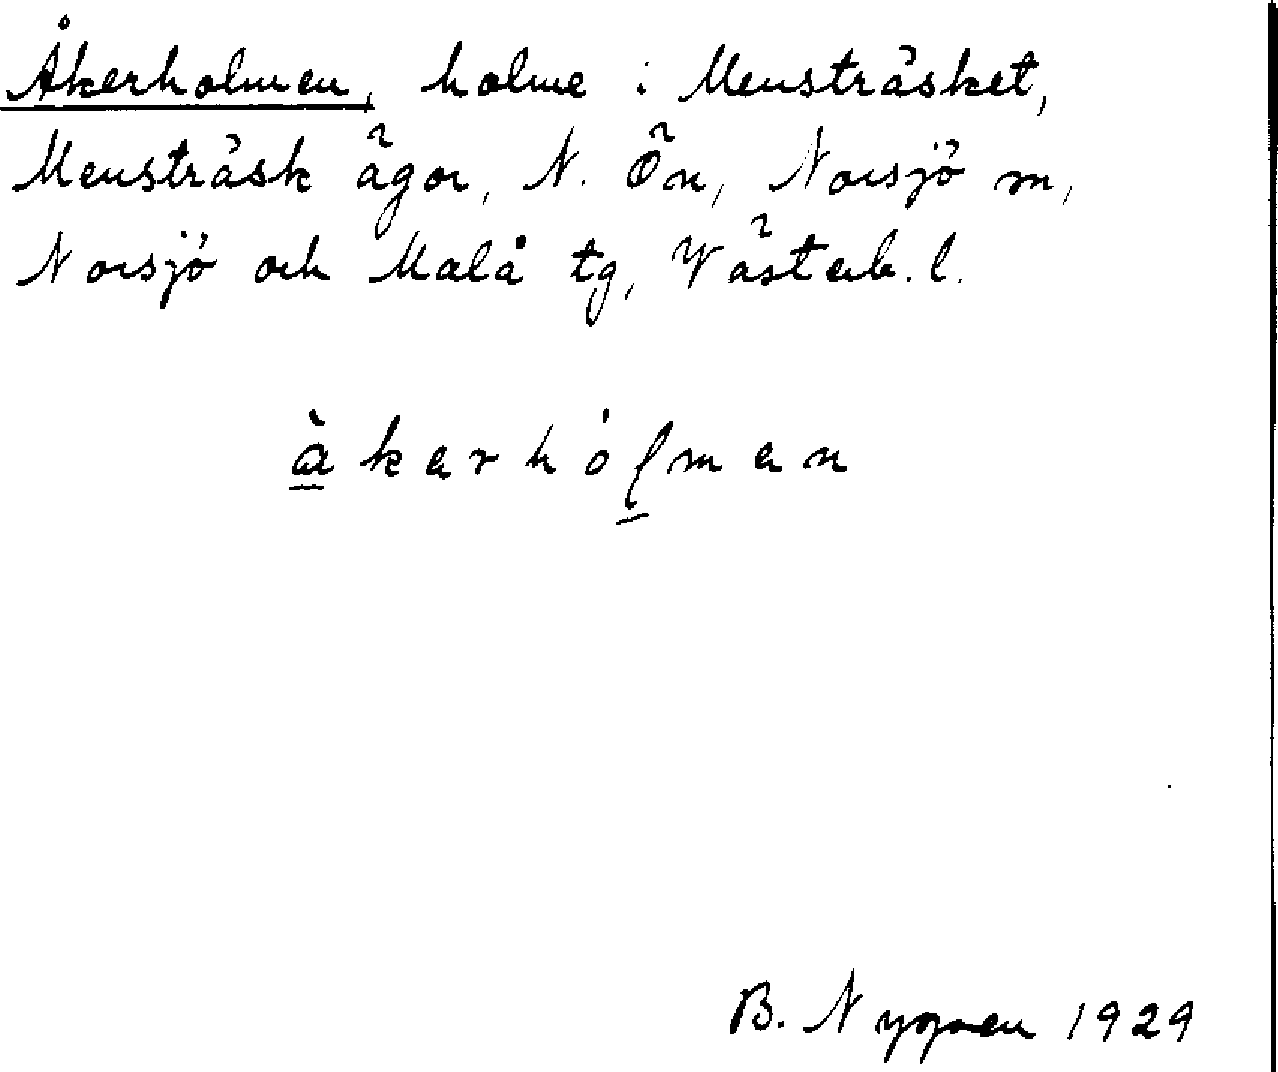 Åkerholmen, holme i Mensträsket,
Mensträsk ägor, N. Ön, Norsjö m,
Norsjö och Malå tg, Västerb. l.
åkerhólmen
B. Nygren 1929